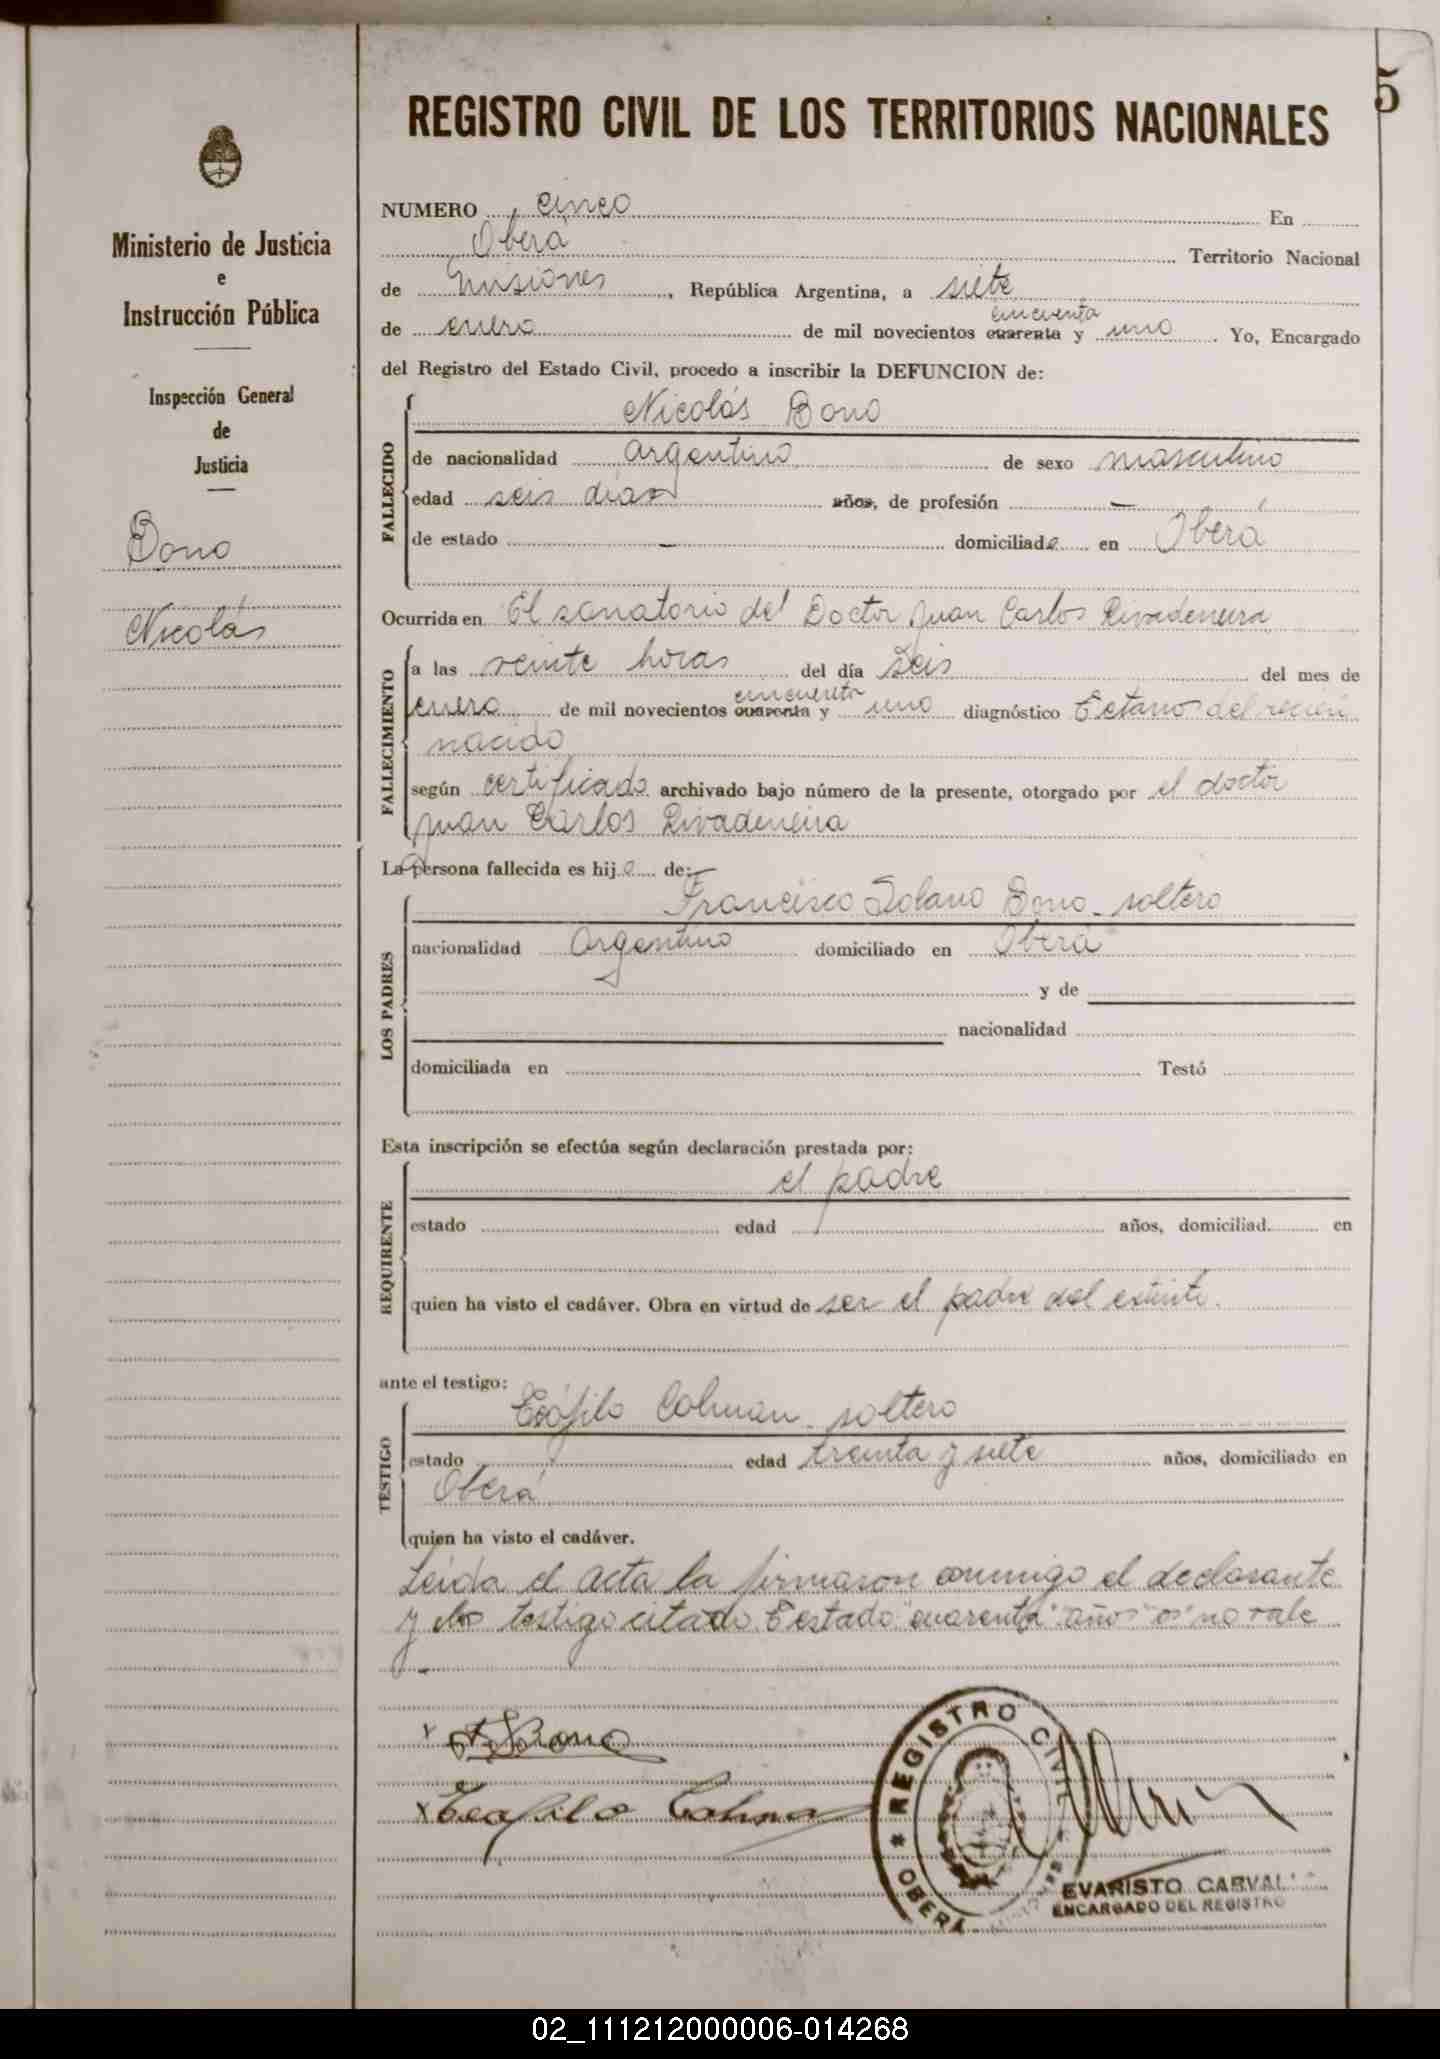 5
REGISTRO CIVIL DE LOS TERRITORIOS NACIONALES
Ministerio de Justicia
e
Instrucción Pública
Inspección General
de
Justicia
Bono
Nicolás
NUMERO cinco En
Oberá Territorio Nacional
de Misiones, República Argentina, a siete
cincuenta
de enero de mil novecientos cuarenta y uno. Yo, Encargado
del Registro del Estado Civil, procedo a inscribir la DEFUNCION de:
FALLECIDO
Nicolás Bono
de nacionalidad argentino de sexo masculino
edad seis días años, de profesión —
de estado — domiciliado en Oberá
Ocurrida en El sanatorio del Doctor Juan Carlos Rivadeneira
FALLECIMIENTO
a las veinte horas del día seis del mes de
cincuenta
enero de mil novecientos cuarenta y uno diagnóstico Tétano del recién
nacido
según certificado archivado bajo número de la presente, otorgado por el doctor
Juan Carlos Rivadeneira
La persona fallecida es hijo de:
LOS PADRES
Francisco Solano Bono - soltero
nacionalidad Argentino domiciliado en Oberá
y de
nacionalidad
domiciliada en Testó
Esta inscripción se efectúa según declaración prestada por:
REQUIRENTE
el padre
estado edad años, domiciliad en
quien ha visto el cadáver. Obra en virtud de ser el padre del extinto.
ante el testigo:
TESTIGO
Teófilo Colman - soltero
estado edad treinta y siete años, domiciliado en
Oberá
quien ha visto el cadáver.
Leída el acta la firmaron conmigo el declarante
y el testigo citado. Testado "cuarenta" "años" "os" no vale
x F. S. Bono
x Teofilo Colman
REGISTRO CIVIL
* OBERA
EVARISTO CARVAL
ENCARGADO DEL REGISTRO
02_111212000006-014268